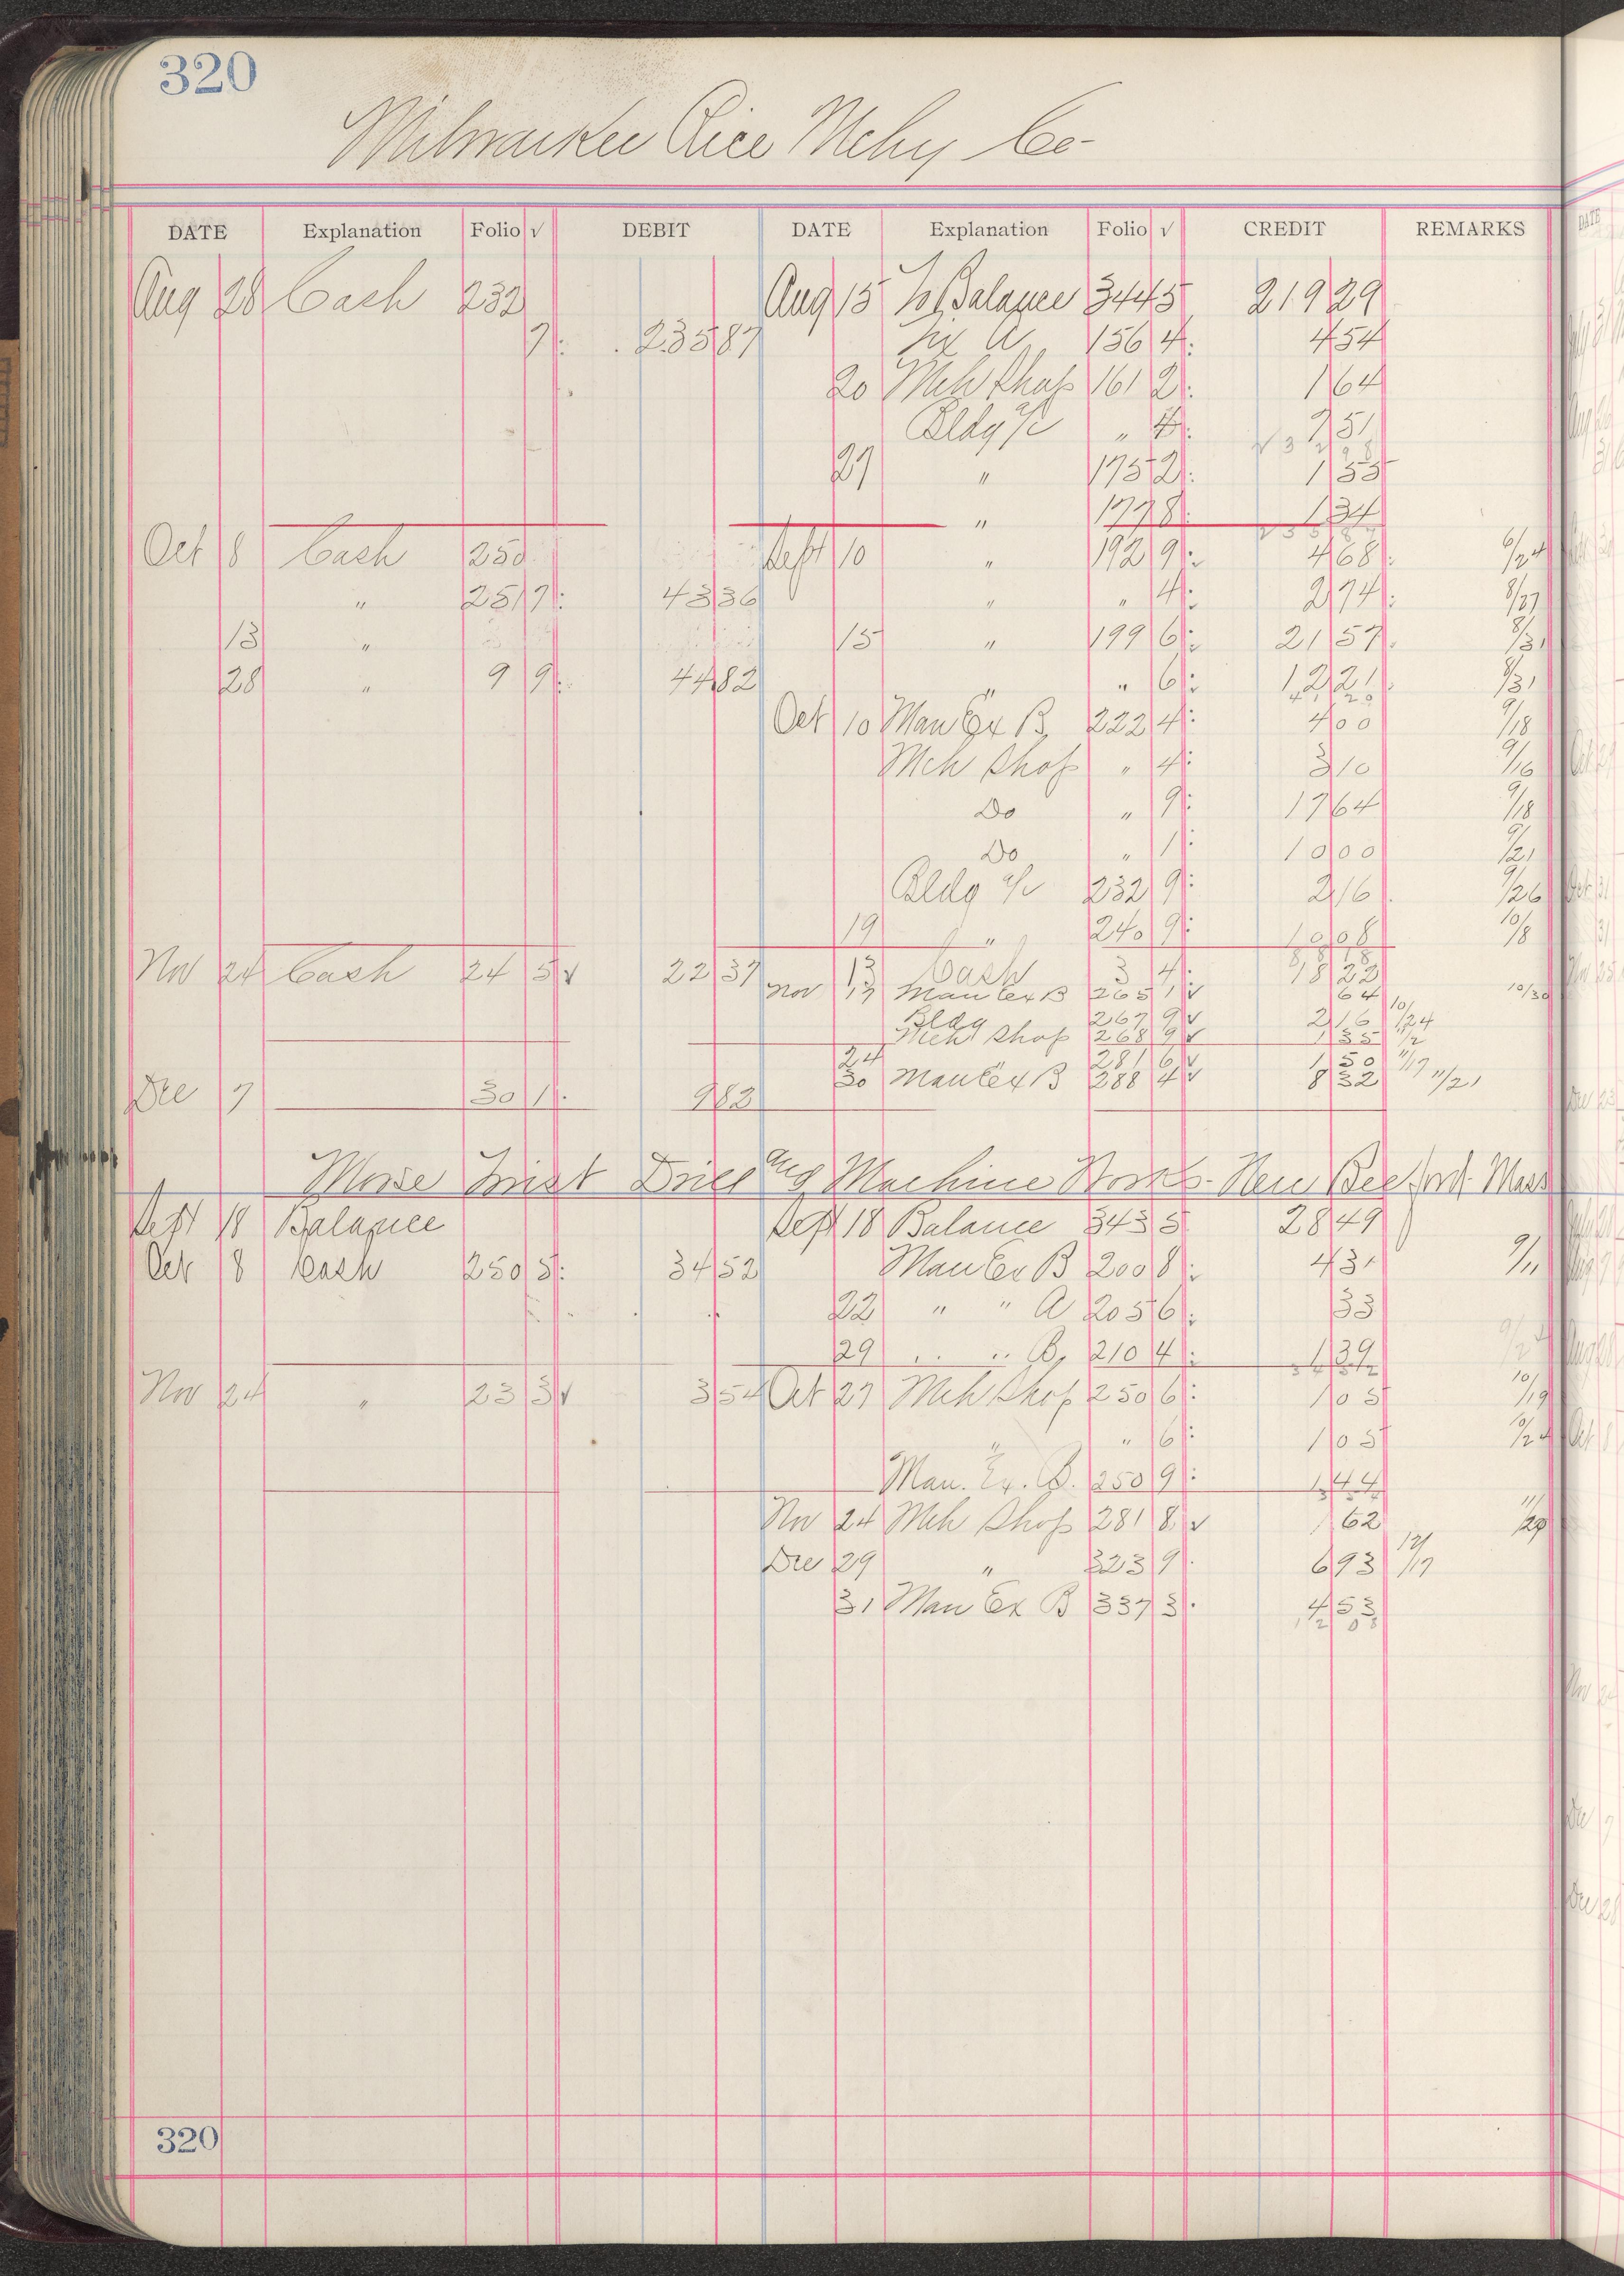 320
Milwaukee Rice Mchy Co-
DATE Explanation Folio √ DEBIT DATE Explanation Folio √ CREDIT REMARKS
Aug 28 Cash 232 Aug 15 To Balance 344 5 219 29
7 235 87 A 156 4 4 54
20 Mch Shop 161 2 1 64
Bldg a/c " 4 7 51
27 " 175 2 1 55
" 177 8 1 34
Oct 8 Cash 250 Sept 10 " 192 9 4 68 6/24
" 251 7 43 36 " " 4 2 74 8/27
13 " 15 " 199 6 21 57 8/31
28 " 9 9 44 82 " " 6 12 21 8/31
Oct 10 Man Ex B 222 4 4 00 9/18
Mch Shop " 4 3 10 9/16
Do " 9 17 64 9/18
Do " 1 10 00 9/21
Bldg a/c 232 9 2 16 9/26
19 " 240 9 10 08 10/8
Nov 24 Cash 24 5 √ 22 37 13 Cash 3 4 18 22
Nov 17 Man Ex B 265 1 √ 64 10/30
Bldg 267 9 √ 2 16 10/24
Mch Shop 268 9 √ 1 35 11/2
24 " 281 6 √ 1 50 11/17
30 Man Ex B 288 4 √ 8 32 11/21
Dec 7 30 1 9 82
Morse Twist Drill and Machine Works. New Bedford. Mass
Sept 18 Balance Sept 18 Balance 343 5 28 49
Oct 8 Cash 250 5 34 52 Man Ex B 200 8 4 31 9/11
22 " " A 205 6 33
29 " " B. 210 4 1 39
Nov 24 " 23 3 √ 3 54 Oct 27 Mch Shop 250 6 1 05 10/19
" " 6 1 05 10/24
Man. Ex. B. 250 9 1 44
Nov 24 Mch Shop 281 8 √ 1 62 11/20
Dec 29 " 323 9 6 93 12/17
31 Man Ex B 337 3 4 53
320